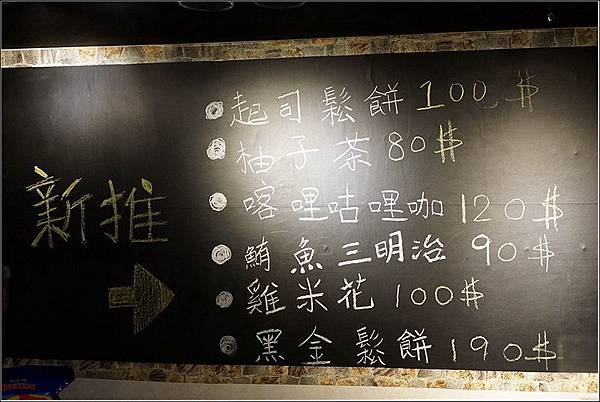 新推
起司鬆餅100$
柚子茶80$
喀哩咕哩咖120$
鮪魚三明治90$
雞米花100$
黑金鬆餅190$